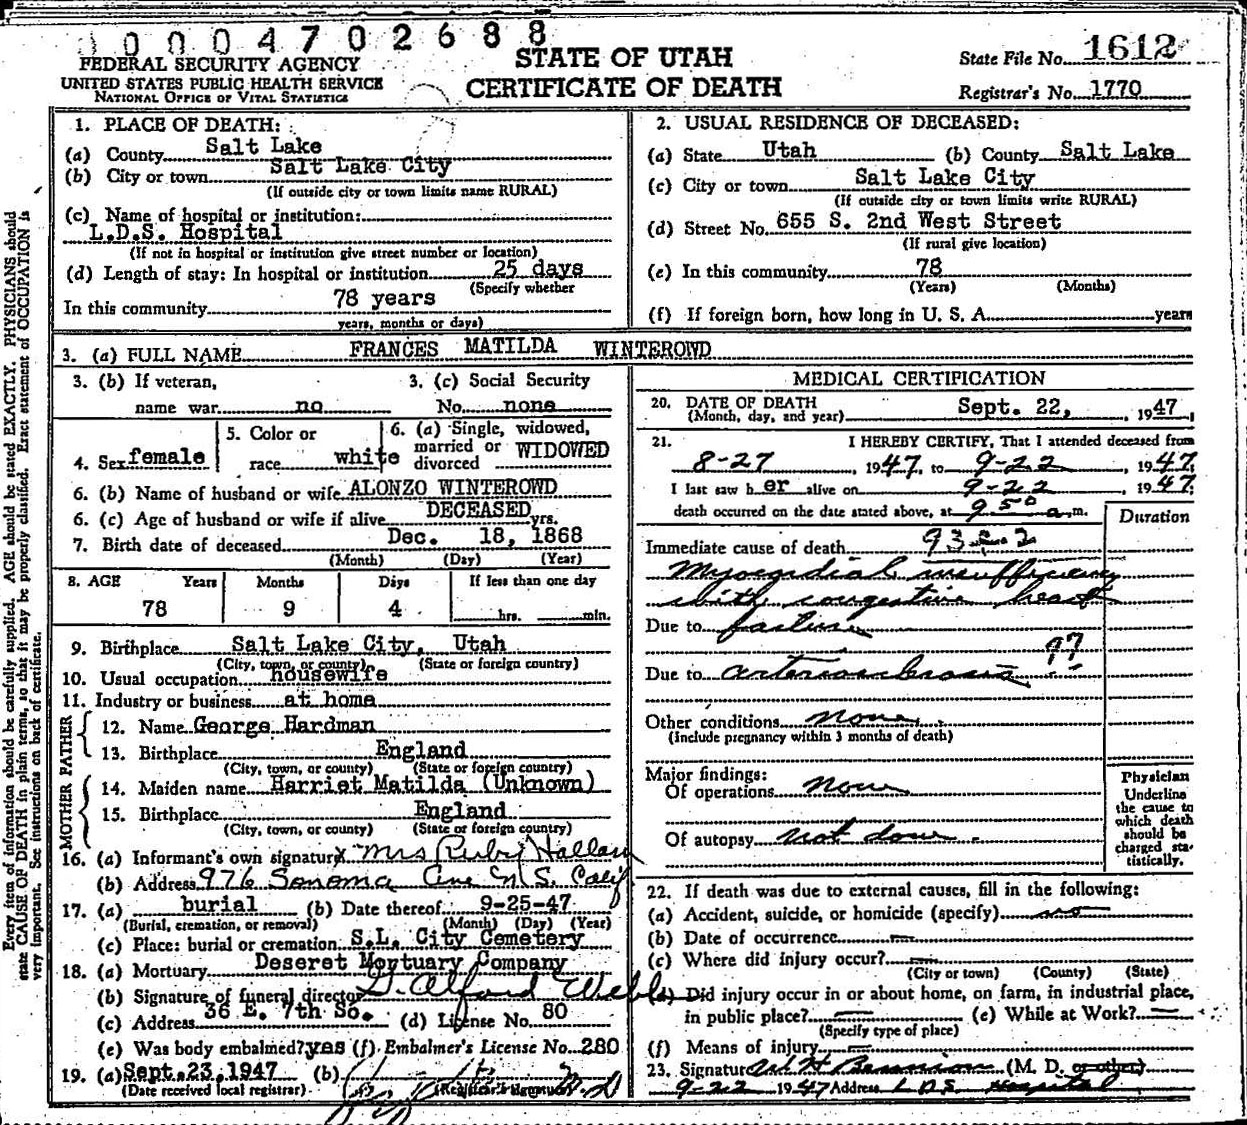 0004702688
FEDERAL SECURITY AGENCY
UNITED STATES PUBLIC HEALTH SERVICE
NATIONAL OFFICE OF VITAL STATISTICS
STATE OF UTAH
CERTIFICATE OF DEATH
State File No. 1612
Registrar's No. 1770
1. PLACE OF DEATH:
(a) County Salt Lake
(b) City or town Salt Lake City
(If outside city or town limits name RURAL)
(c) Name of hospital or institution:
L.D.S. Hospital
(If not in hospital or institution give street number or location)
(d) Length of stay: In hospital or institution 25 days
(Specify whether
In this community 78 years
years, months or days)
2. USUAL RESIDENCE OF DECEASED:
(a) State Utah (b) County Salt Lake
(c) City or town Salt Lake City
(If outside city or town limits write RURAL)
(d) Street No. 655 S. 2nd West Street
(If rural give location)
(e) In this community 78
(Years) (Months)
(f) If foreign born, how long in U. S. A. years
3. (a) FULL NAME FRANCES MATILDA WINTEROWD
3. (b) If veteran, name war no
3. (c) Social Security No. none
4. Sex female
5. Color or race white
6. (a) Single, widowed, married or divorced WIDOWED
6. (b) Name of husband or wife ALONZO WINTEROWD
6. (c) Age of husband or wife if alive DECEASED yrs.
7. Birth date of deceased Dec. 18, 1868
(Month) (Day) (Year)
8. AGE Years Months Days If less than one day
78 9 4 hrs. min.
9. Birthplace Salt Lake City, Utah
(City, town, or county) (State or foreign country)
10. Usual occupation housewife
11. Industry or business at home
FATHER
12. Name George Hardman
13. Birthplace England
(City, town, or county) (State or foreign country)
MOTHER
14. Maiden name Harriet Matilda (Unknown)
15. Birthplace England
(City, town, or county) (State or foreign country)
16. (a) Informant's own signature x Mrs Ruby Hallam
(b) Address 976 Sonoma Ave N S. Calif
17. (a) burial (b) Date thereof 9-25-47
(Burial, cremation, or removal) (Month) (Day) (Year)
(c) Place: burial or cremation S.L. City Cemetery
18. (a) Mortuary Deseret Mortuary Company
(b) Signature of funeral director D. Alford Webb
(c) Address 36 E. 7th So. (d) License No. 80
(e) Was body embalmed? yes (f) Embalmer's License No. 280
19. (a) Sept. 23, 1947 (b)
(Date received local registrar) (Registrar's signature)
MEDICAL CERTIFICATION
20. DATE OF DEATH Sept. 22, 1947
(Month, day, and year)
21. I HEREBY CERTIFY, That I attended deceased from
8-27, 1947, to 9-22, 1947
I last saw her alive on 9-22, 1947;
death occurred on the date stated above, at 9 50 a.m.
Duration
Immediate cause of death
Myocardial insufficiency
with congestive heart
Due to failure
97
Due to arteriosclerosis
Other conditions None
(Include pregnancy within 3 months of death)
Major findings:
Of operations None
Of autopsy not done
Physician
Underline
the cause to
which death
should be
charged sta-
tistically.
22. If death was due to external causes, fill in the following:
(a) Accident, suicide, or homicide (specify) no
(b) Date of occurrence —
(c) Where did injury occur? —
(City or town) (County) (State)
(d) Did injury occur in or about home, on farm, in industrial place,
in public place? — (e) While at Work? —
(Specify type of place)
(f) Means of injury —
23. Signature (M. D. or other)
9-22 1947 Address L.D.S. Hospital
Every item of information should be carefully supplied. AGE should be stated EXACTLY. PHYSICIANS should
state CAUSE OF DEATH in plain terms, so that it may be properly classified. Exact statement of OCCUPATION is
very important. See instructions on back of certificate.